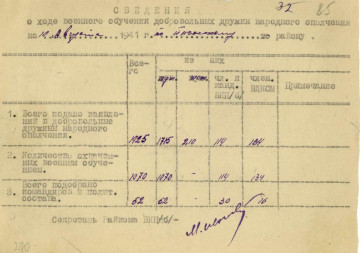 72 85
СВЕДЕНИЯ
о ходе военного обучения добровольных дружин народного ополчения
на 1941 г. по району.
Все-
го
Из них
муж. жен. чл. и
канд.
ВКП/б/ член.
ВЛКСМ Примечание
1. Всего подано заявле-
ний в добровольные
дружины народного
ополчения. 1925 1715 210 114 164
2. Количество охвачен-
ных военным обуче-
нием. 1070 1070 — 114 134
3. Всего подобрано
командиров и полит.
состава. 62 62 — 30 16
Секретарь Райкома ВКП/б/-